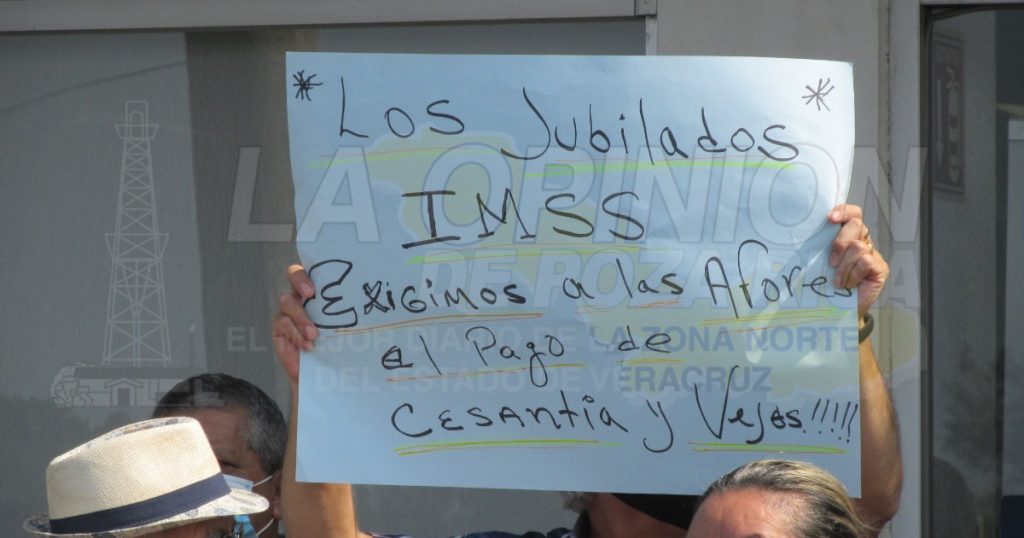 * Los Jubilados *
IMSS
Exigimos a las Afores
el Pago de
Cesantia y Vejes!!!!!
LA OPINION
DE POZA RICA
EL MEJOR DIARIO DE LA ZONA NORTE
DEL ESTADO DE VERACRUZ